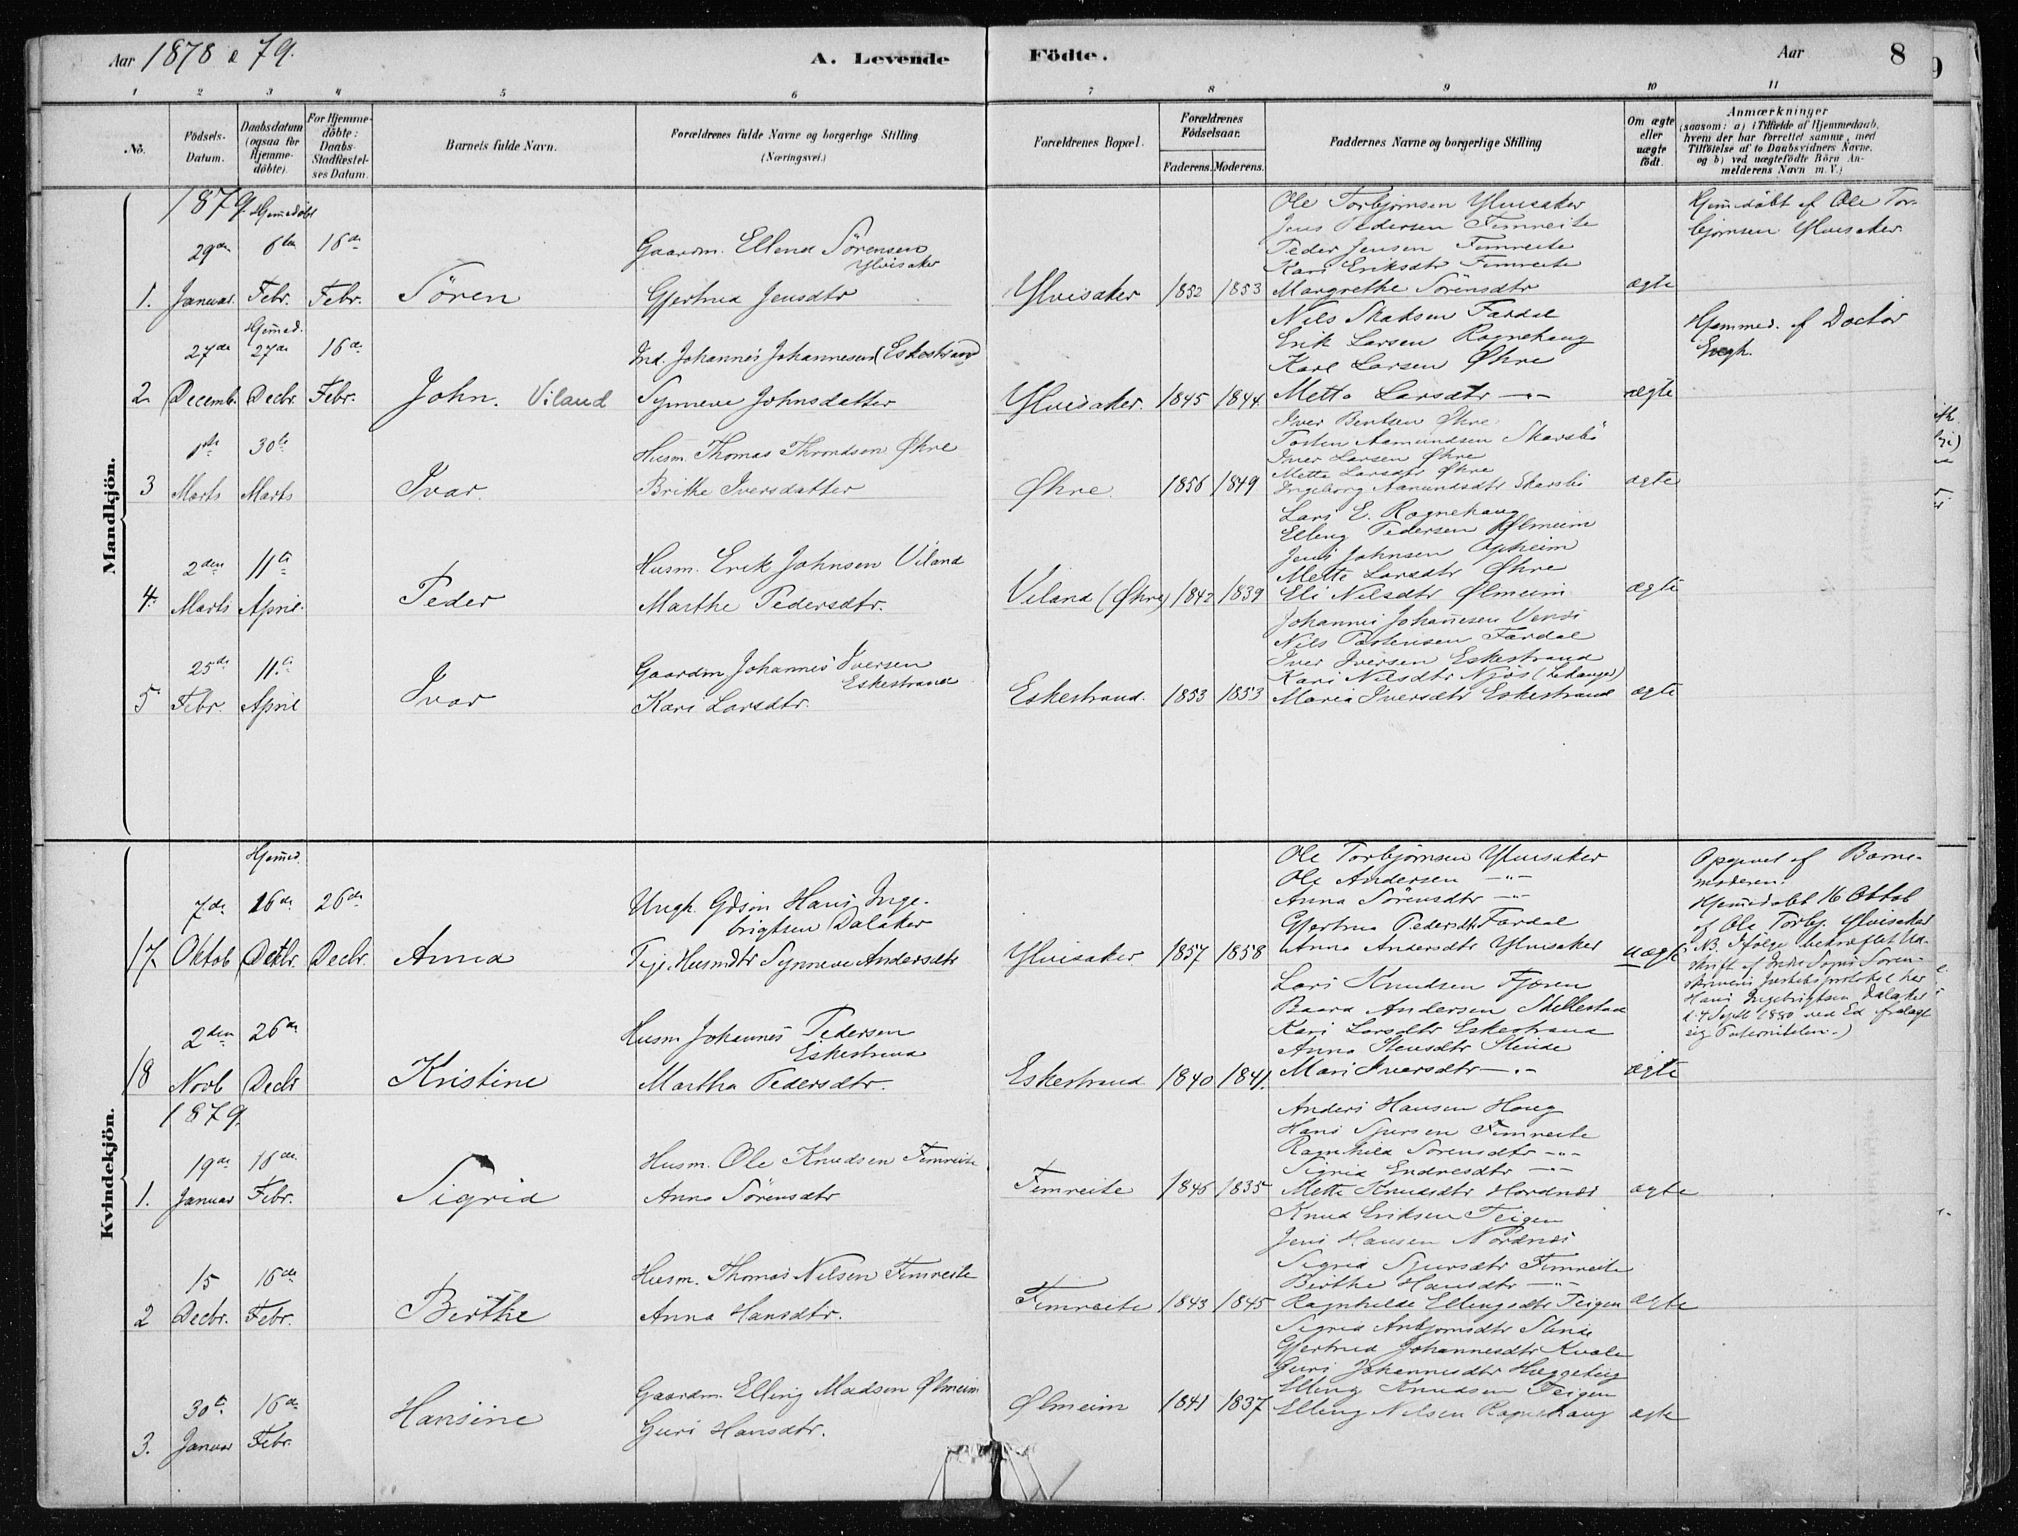 Aar 1878 & 79.
A. Levende Födte.
Aar
8
1 2 3 4 5 6 7 8 9 10 11
No.
Födsels-Datum.
Daabsdatum (ogsaa for Hjemmedöbte).
For Hjemmedöbte: Daabs-Stadfæstelses Datum.
Barnets fulde Navn.
Forældrenes fulde Navne og borgerlige Stilling (Næringsvei.)
Forældrenes Bopæl.
Forældrenes Födselsaar.
Faderens. Moderens.
Faddernes Navne og borgerlige Stilling
Om ægte eller uægte födt.
Anmærkninger
(saasom: a) i Tilfælde af Hjemmedaab,
hvem der har forrettet samme, med
Tilföielse af to Daabsvidners Navne,
og b) ved uægtefödte Börn An-
melderens Navn m. V.)
Mandkjön.
1879. Hjemedøbt
29de 6te 16de
1. Januar. Febr. Febr. Sören
Gaardm. Ellend Sørensen
Ylvisaker
Gjertrud Jensdtr
Ylvisaker 1852 1853
Ole Torbjørnsen Ylvisaker
Jens Pedersen Fimreite
Peder Jensen Fimreite
Kari Eriksdtr Fimreite
Margrethe Sørensdtr
ægte
Hjemedøbt af Ole Tor-
bjørnsen Ylvisaker.
Hjemed.
27de 27de 16de
2. Decemb. Decbr. Febr. John. Viland
Ind. Johannes Johannesen (Eskestrand)
Synneve Johnsdatter
Ylvisaker. 1845 1844
Nils Fardal
Erik Larsen Rognehaug
Karl Larsen Øhre
Mette Larsdtr —"—
ægte
Hjemmed. af Doctor
1ste 30te
3 Marts Marts Ivar.
Husm. Thomas Throndsen Øhre
Brithe Iversdatter
Øhre. 1856 1849
Iver Bentsen Øhre
Torsten Aamundsen Skarsbø
Iver Larsen Øhre
Mette Larsdtr Øhre
Ingeborg Aamundsdtr Skarsbø
ægte
2den 11te
4. Marts April. Peder
Husm. Erik Johnsen Viland
Marthe Pedersdtr.
Viland (Øhre) 1842 1839
Lars E. Rognehaug
Elling Pedersen Ølmeim
Jens Johnsen Opheim
Mette Larsdtr Øhre
Eli Nilsdtr Ølmeim
ægte
25de 11te
5 Febr. April Ivar
Gaardm Johannes Iversen
Eskestrand
Kari Larsdtr.
Eskestrand. 1853 1853
Johannes Johannesen
Nils Fardal
Iver Iversen Eskestrand
Kari Nilsdtr Njøs (Lekanger)
Maria Iversdtr Eskestrand
ægte
Kvindekjön.
Hjemed.
7de 16de 26de
17 Oktob Decbr. Anna
Ungk. Gdsøn Hans Inge-
brigtsen Dalaker
Husmdtr Synneve Andersdtr
Ylvisaker 1857 1858
Ole Torbjørnsen Ylvisaker
Ole Andersen —"—
Anna Sørensdtr —"—
Gjertrud Pedersdtr Fardal
Anna Andersdtr Ylvisaker
uægte
Opgivet af Barne-
moderen.
Hjemedøbt 16 Oktob
af Ole Torbj. Ylvisaker
NB. Ifølge bekræftet Ud-
skrift af Indre Sogns Soren-
skriveris Justitsprotokol har
Hans Ingebrigtsen Dalaker
d. 4 Septb 1880 ved Ed fralagt
sig Paterniteten.)
2den 26de
18 Novb Decbr Kristine
Husm Johannes Pedersen
Eskestrand
Martha Pedersdtr.
Eskestrand 1840 1841.
Lars Knudsen Fjæren
Baard Andersen Stellestad
Kari Larsdtr Eskestrand
Anna Stensdtr Slinde
Mari Iversdtr —"—
ægte
1879.
19de 16de
1. Januar Febr. Sigrid
Husm. Ole Knudsen Fimreite
Anna Sørensdtr
Fimreite 1846 1835
Anders Hansen Haug
Hans Sjursen Fimreite
Ragnhild Sørensdtr —"—
Sigrid Endresdtr —"—
Mette Knudsdtr Nordnæs
ægte
15 16de
2 Decbr. Febr. Birthe
Husm. Thomas Nilsen Fimreite
Anna Hansdtr.
Fimreite 1843 1845
Knud Eriksen Teigen
Jens Hansen Nordnæs
Sigrid Sjursdtr Fimreite
Birthe Hansdtr —"—
Ragnhilde Ellingsdtr Teigen
ægte
30te 16de
3. Januar Febr. Hansine
Gaardm. Elling Madsen Ølmeim
Guri Hansdtr.
Ølmeim 1841 1837
Sigrid Anbjørnsdtr Slinde
Gjertrud Johannesdtr Kvale
Guri Johannesdtr Hæggestig
Elling Knudsen Teigen
Elling Nilsen Rognehaug
ægte